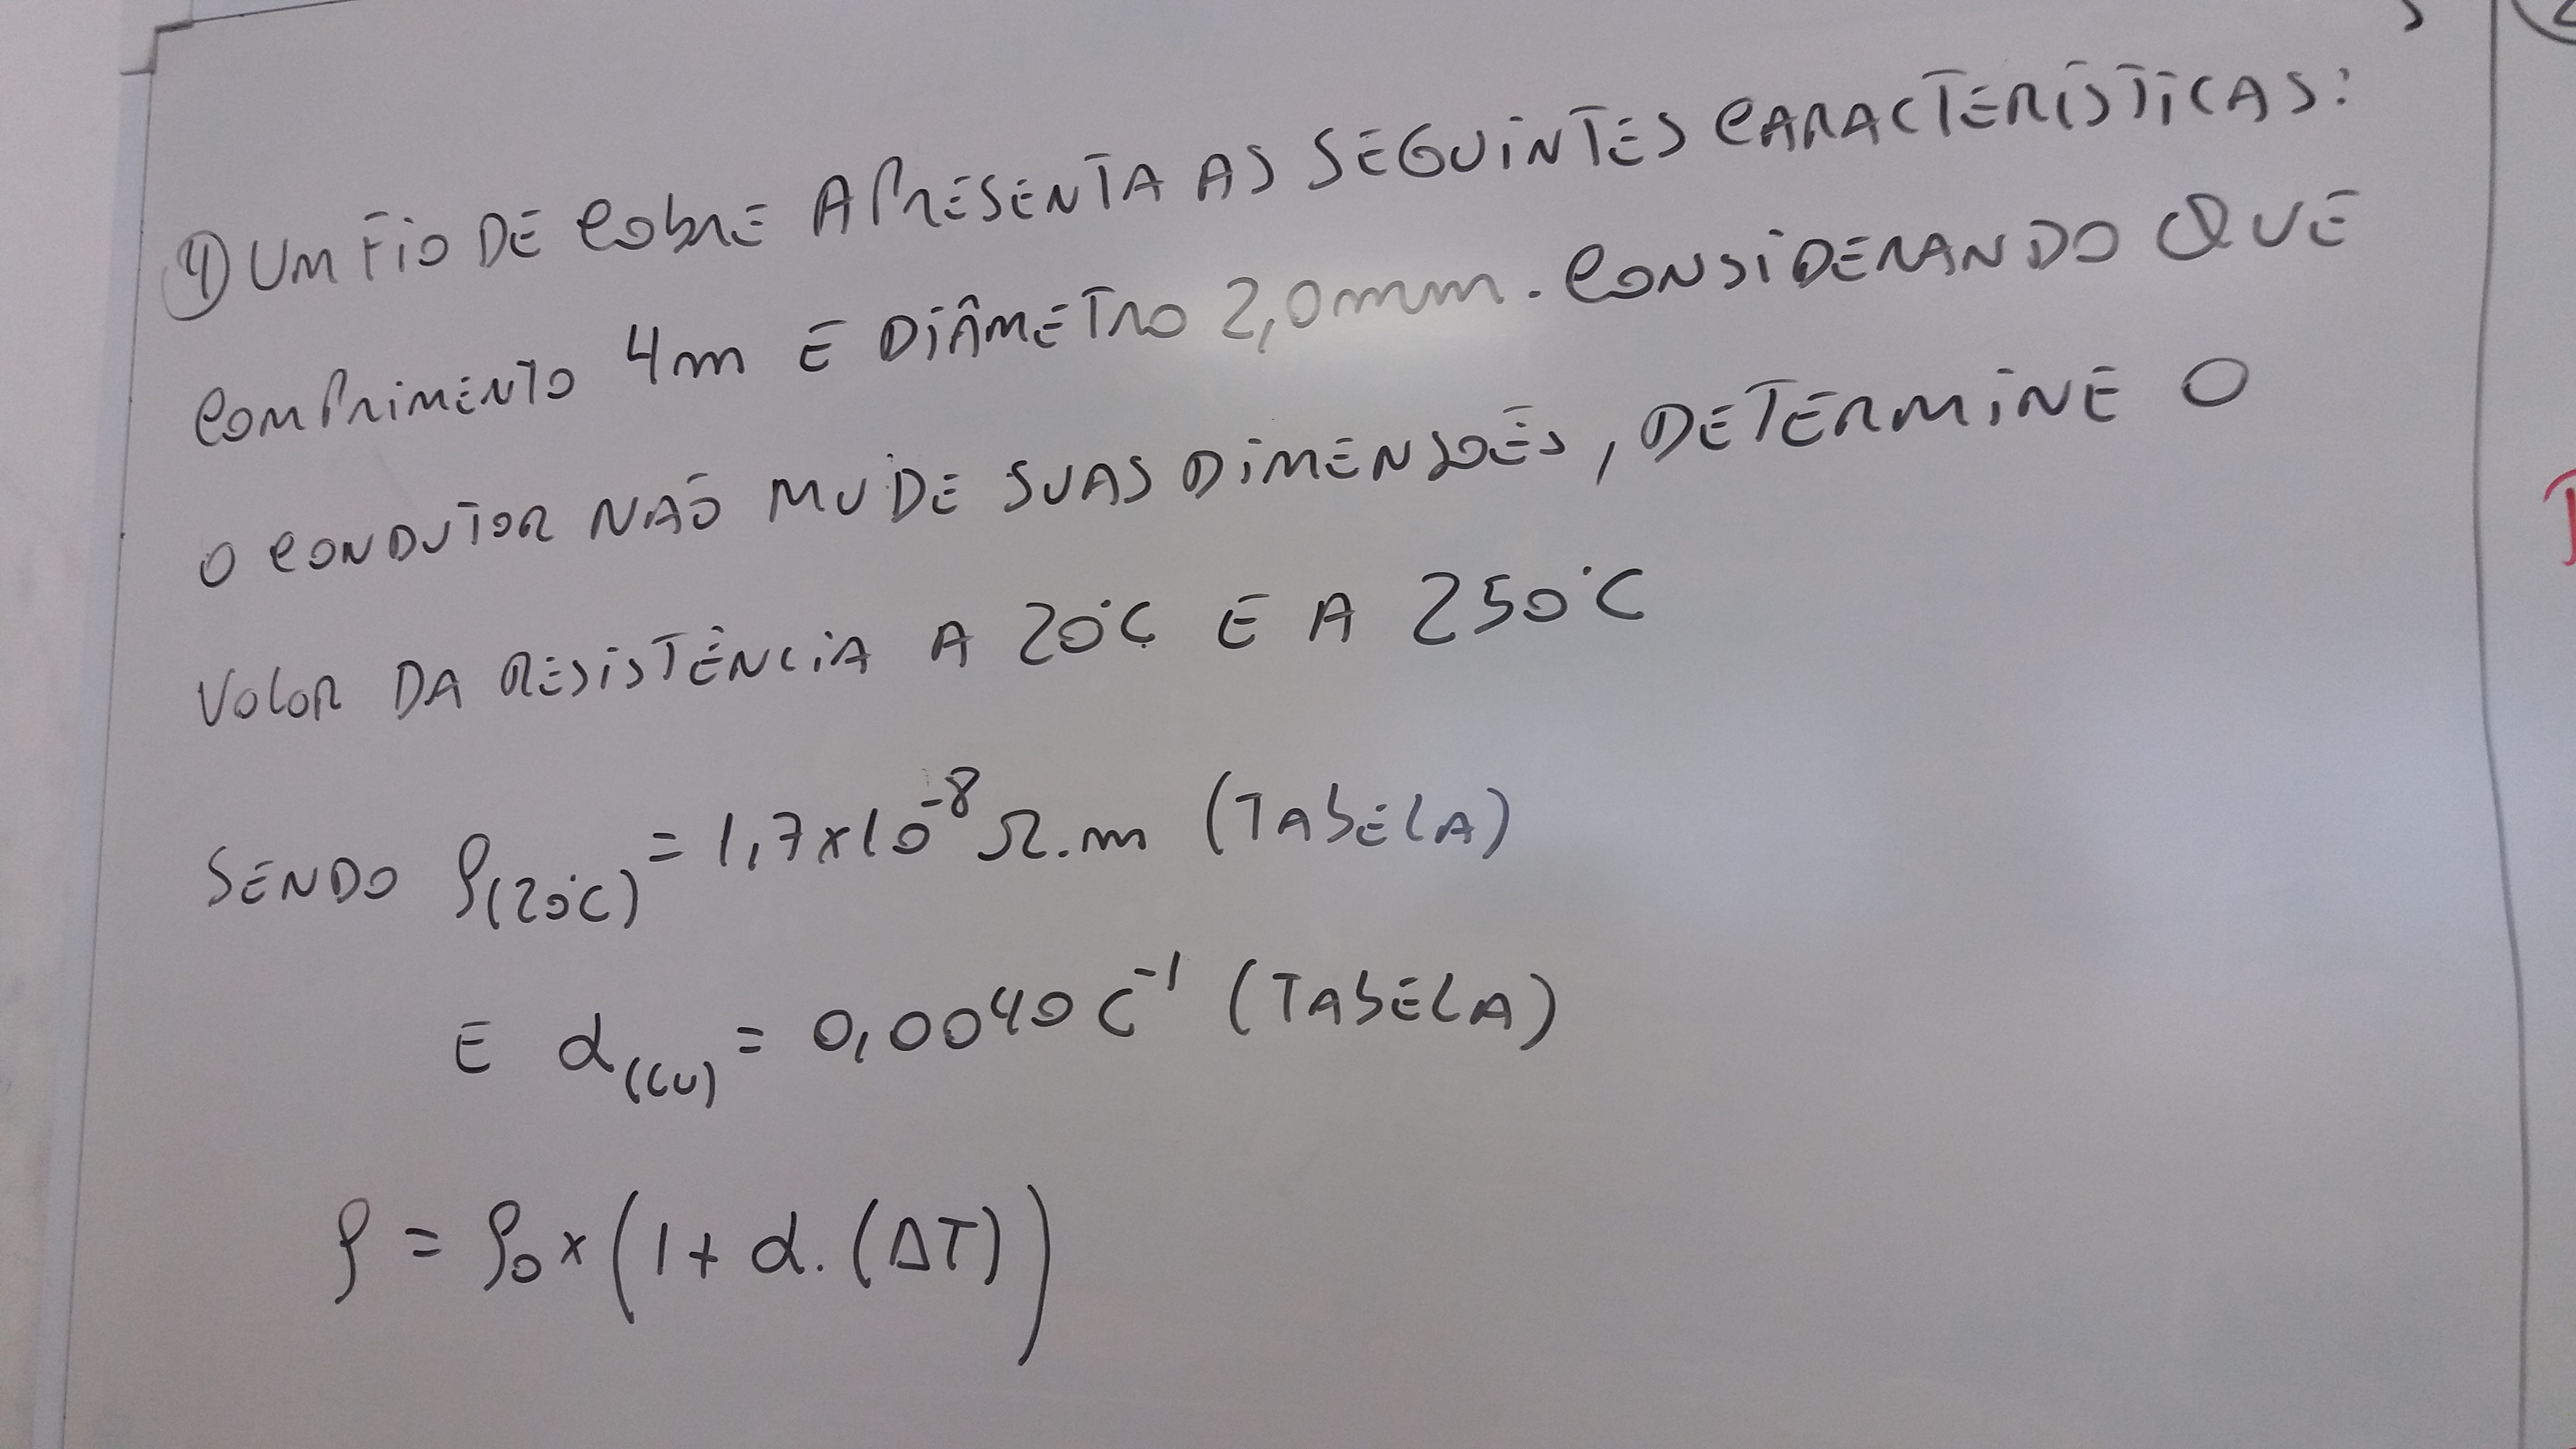 4) UM FIO DE COBRE APRESENTA AS SEGUINTES CARACTERÍSTICAS:
COMPRIMENTO 4m E DIÂMETRO 2,0mm. CONSIDERANDO QUE
O CONDUTOR NÃO MUDE SUAS DIMENSÕES, DETERMINE O
VOLOR DA RESISTÊNCIA A 20°C E A 250°C
SENDO ρ(20°C) = 1,7x10⁻⁸ Ω.m (TABELA)
E α(Cu) = 0,0040 C⁻¹ (TABELA)
ρ = ρ₀ x (1 + α. (ΔT))